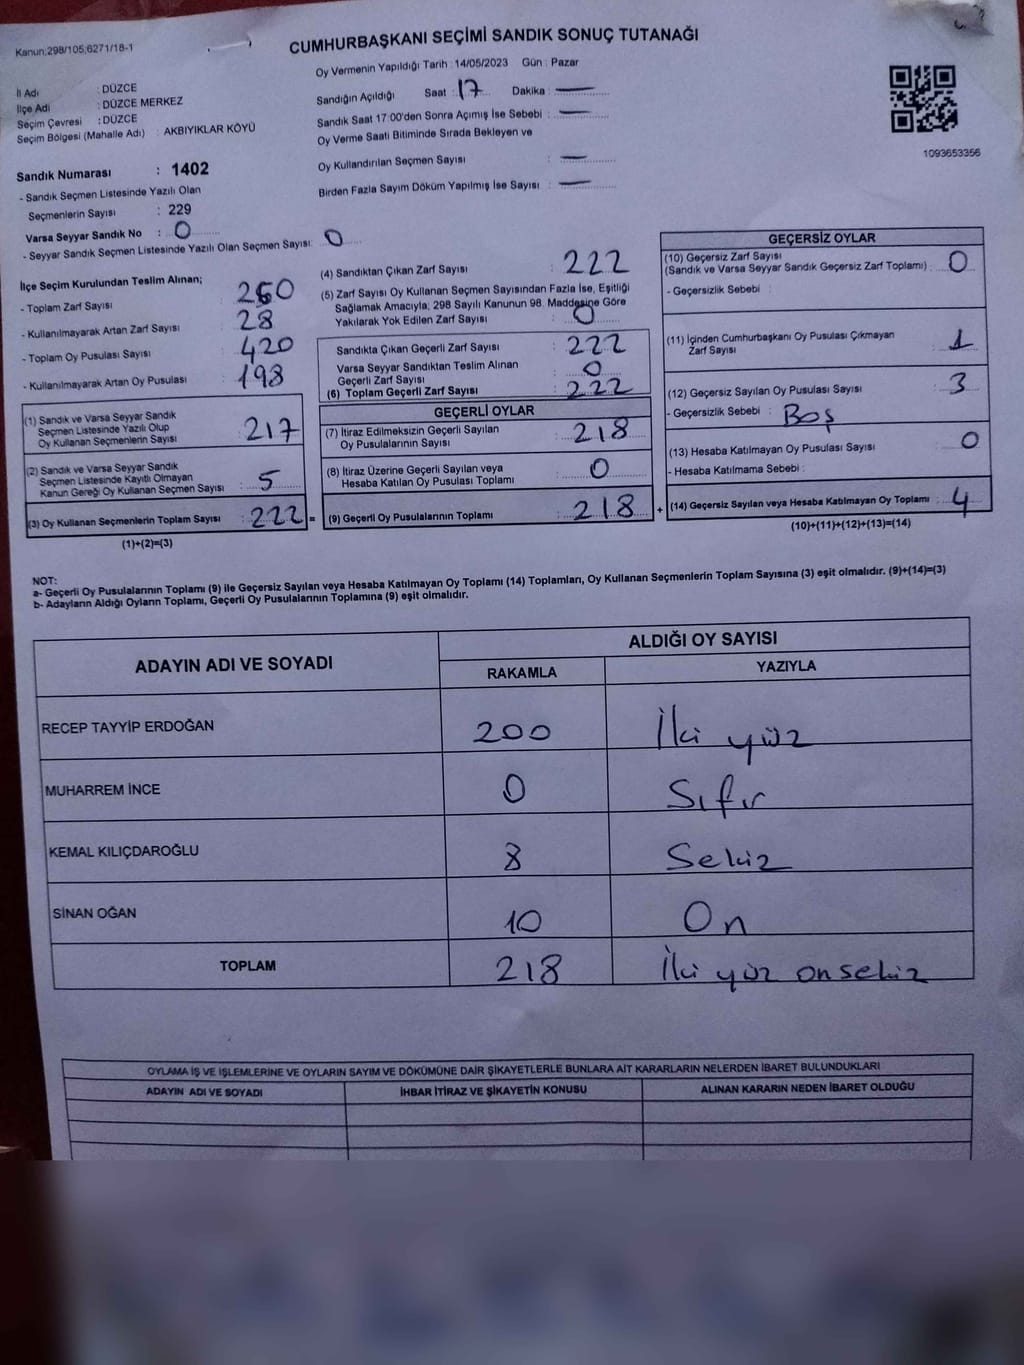 Kanun;298/105,6271/18-1
CUMHURBAŞKANI SEÇİMİ SANDIK SONUÇ TUTANAĞI
İl Adı : DÜZCE
İlçe Adı : DÜZCE MERKEZ
Seçim Çevresi : DÜZCE
Seçim Bölgesi (Mahalle Adı) : AKBIYIKLAR KÖYÜ
Sandık Numarası : 1402
- Sandık Seçmen Listesinde Yazılı Olan
Seçmenlerin Sayısı : 229
Varsa Seyyar Sandık No : 0
- Seyyar Sandık Seçmen Listesinde Yazılı Olan Seçmen Sayısı: 0
Oy Vermenin Yapıldığı Tarih : 14/05/2023 Gün : Pazar
Sandığın Açıldığı Saat : 17 Dakika : —
Sandık Saat 17:00'den Sonra Açımış İse Sebebi : —
Oy Verme Saati Bitiminde Sırada Bekleyen ve
Oy Kullandırılan Seçmen Sayısı : —
Birden Fazla Sayım Döküm Yapılmış İse Sayısı : —
1093653356
İlçe Seçim Kurulundan Teslim Alınan;
- Toplam Zarf Sayısı : 250
- Kullanılmayarak Artan Zarf Sayısı : 28
- Toplam Oy Pusulası Sayısı : 420
- Kullanılmayarak Artan Oy Pusulası : 198
(1) Sandık ve Varsa Seyyar Sandık
Seçmen Listesinde Yazılı Olup
Oy Kullanan Seçmenlerin Sayısı : 217
(2) Sandık ve Varsa Seyyar Sandık
Seçmen Listesinde Kayıtlı Olmayan
Kanun Gereği Oy Kullanan Seçmen Sayısı : 5
(3) Oy Kullanan Seçmenlerin Toplam Sayısı : 222 =
(1)+(2)=(3)
(4) Sandıktan Çıkan Zarf Sayısı : 222
(5) Zarf Sayısı Oy Kullanan Seçmen Sayısından Fazla İse, Eşitliği
Sağlamak Amacıyla; 298 Sayılı Kanunun 98. Maddesine Göre
Yakılarak Yok Edilen Zarf Sayısı : 0
Sandıkta Çıkan Geçerli Zarf Sayısı : 222
Varsa Seyyar Sandıktan Teslim Alınan
Geçerli Zarf Sayısı : 0
(6) Toplam Geçerli Zarf Sayısı : 222
GEÇERLİ OYLAR
(7) İtiraz Edilmeksizin Geçerli Sayılan
Oy Pusulalarının Sayısı : 218
(8) İtiraz Üzerine Geçerli Sayılan veya
Hesaba Katılan Oy Pusulası Toplamı : 0
(9) Geçerli Oy Pusulalarının Toplamı : 218 +
GEÇERSİZ OYLAR
(10) Geçersiz Zarf Sayısı
(Sandık ve Varsa Seyyar Sandık Geçersiz Zarf Toplamı) : 0
- Geçersizlik Sebebi :
(11) İçinden Cumhurbaşkanı Oy Pusulası Çıkmayan
Zarf Sayısı : 1
(12) Geçersiz Sayılan Oy Pusulası Sayısı : 3
- Geçersizlik Sebebi : Boş
(13) Hesaba Katılmayan Oy Pusulası Sayısı : 0
- Hesaba Katılmama Sebebi :
(14) Geçersiz Sayılan veya Hesaba Katılmayan Oy Toplamı : 4
(10)+(11)+(12)+(13)=(14)
NOT:
a- Geçerli Oy Pusulalarının Toplamı (9) ile Geçersiz Sayılan veya Hesaba Katılmayan Oy Toplamı (14) Toplamları, Oy Kullanan Seçmenlerin Toplam Sayısına (3) eşit olmalıdır. (9)+(14)=(3)
b- Adayların Aldığı Oyların Toplamı, Geçerli Oy Pusulalarının Toplamına (9) eşit olmalıdır.
ADAYIN ADI VE SOYADI ALDIĞI OY SAYISI
RAKAMLA YAZIYLA
RECEP TAYYİP ERDOĞAN 200 İki yüz
MUHARREM İNCE 0 Sıfır
KEMAL KILIÇDAROĞLU 8 Sekiz
SİNAN OĞAN 10 On
TOPLAM 218 İki yüz on sekiz
OYLAMA İŞ VE İŞLEMLERİNE VE OYLARIN SAYIM VE DÖKÜMÜNE DAİR ŞİKAYETLERLE BUNLARA AİT KARARLARIN NELERDEN İBARET BULUNDUKLARI
ADAYIN ADI VE SOYADI İHBAR İTİRAZ VE ŞİKAYETİN KONUSU ALINAN KARARIN NEDEN İBARET OLDUĞU